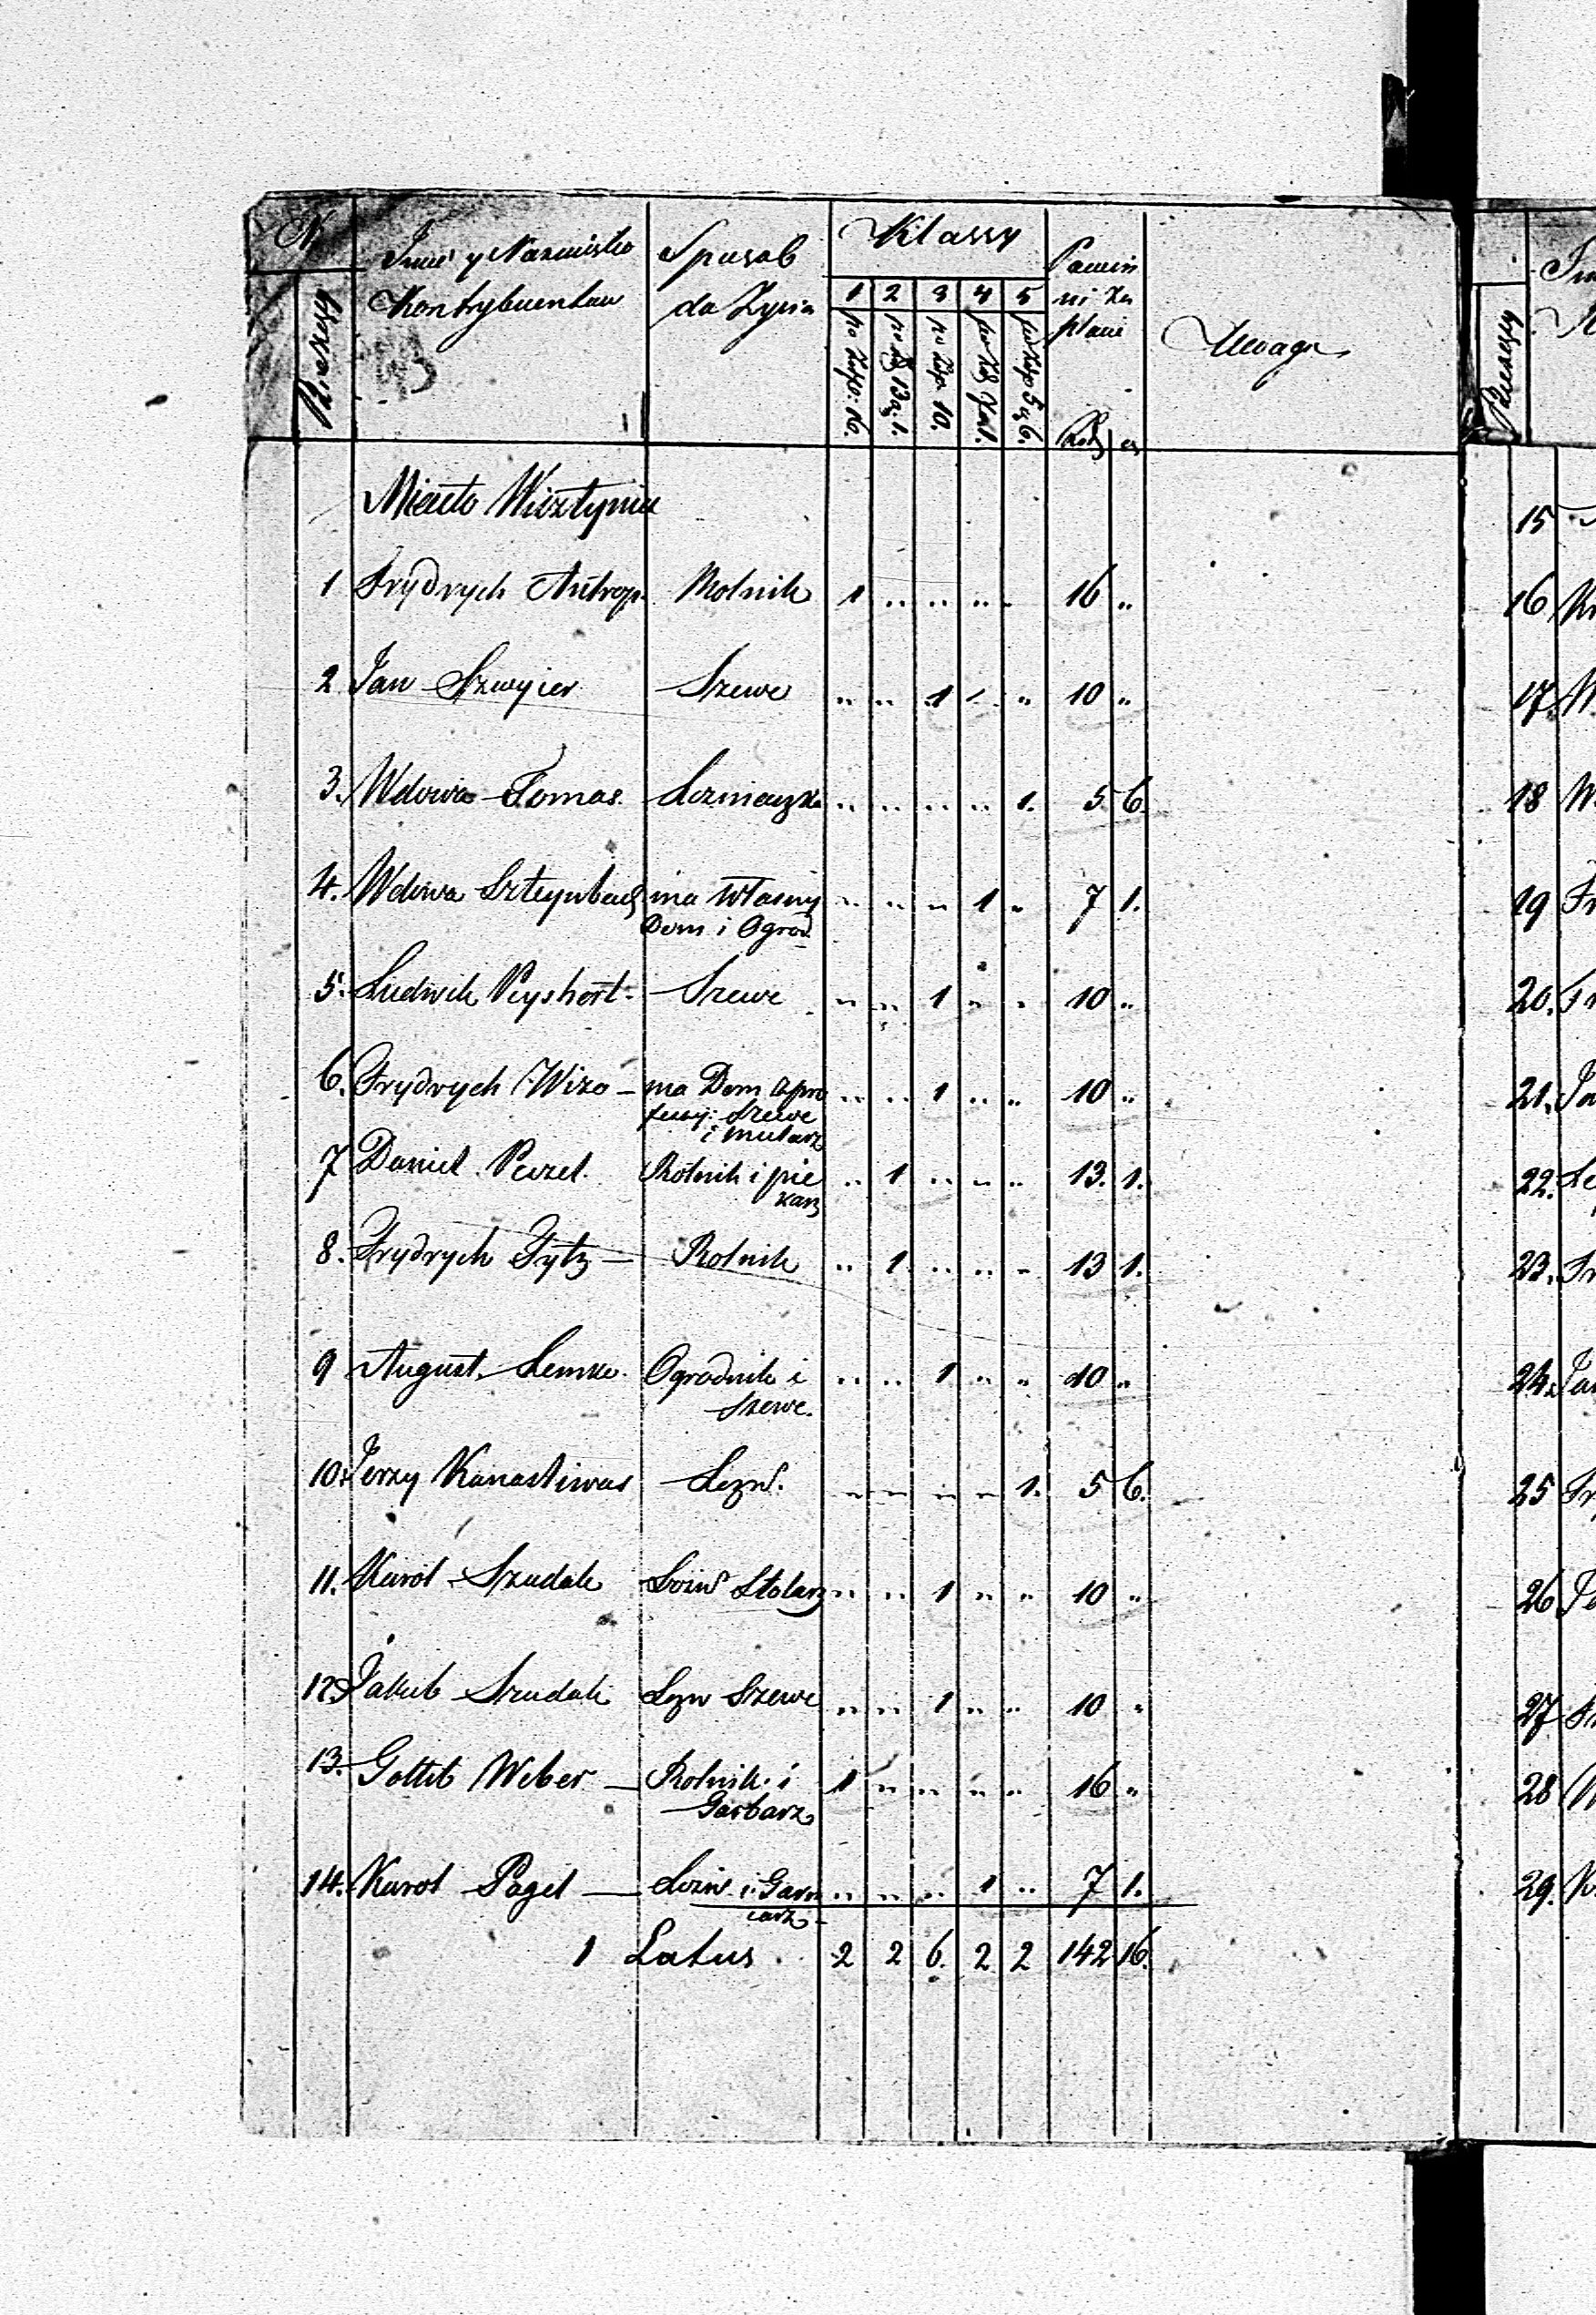 N
Bieżący
Imie y Nazwisko
Kontrybuentow
Sposob
do Zycia
Klassy
1 2 3 4 5
po Złp: 16.
po Zł 13 g. 1.
po Złp 10.
po Zł 7 g 1.
po Złp 5 g 6.
Powin
ni Za
płacić
Uwaga
Miasto Wisztyniec
1 Frydrych Antrop. Rolnik 1 .. .. .. .. 16 ..
2 Jan Szwyier Szewc .. .. 1 .. .. 10 ..
3. Wdowa Tomas. Lozniczka .. .. .. .. 1. 5 6.
4. Wdowa Szteynbach ma własny .. .. .. 1 .. 7 1.
Dom i Ogrod
5. Ludwik Peyshort Szewc .. .. 1 .. .. 10 ..
6. Frydrych Wizo — ma Dom a pro .. .. 1 .. .. 10 ..
fessy: Szewc
i mularz
7 Daniel Pezel. Rolnik i pie .. 1 .. .. .. 13. 1.
karz
8. Frydrych Fytz — Rolnik .. 1 .. .. .. 13 1.
9 August Lemke. Ogrodnik i .. .. 1 .. .. 10 ..
Szewc.
10. Jerzy Kanastiwas Lozn. .. .. .. .. 1. 5 6.
11. Karol Szudak Lozn Stolarz .. .. 1 .. .. 10 ..
12. Jakub Szudak Lozn Szewc .. .. 1 .. .. 10 ..
13. Gottlib Weber — Rolnik i 1 .. .. .. .. 16 ..
Garbarz
14. Karol Pagel — Lozn i Garn .. .. .. 1 .. 7 1.
carz
1 Latus. 2 2 6. 2 2 142 16.
Bieżący
15
16
17
18
19
20.
21.
22.
23.
24.
25
26
27
28
29.